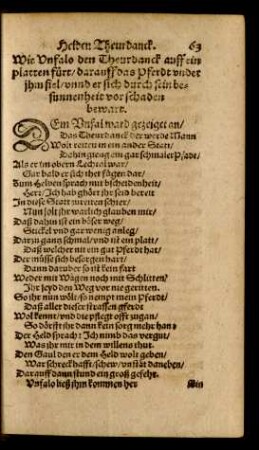 Helden Theurdanck. 63
Wie Vnfalo den Theurdanck auff ein
platten fürt / darauff das Pferdt vnder
jhm fiel / vnnd er sich durch sein be-
sunnenheit vor schaden
bewart.
DEm Vnfal ward gezeiget an /
Das Theurdanck der werde Mann
Wolt reiten in ein ander Statt /
Dahin gieng ein gar schmaler Pfade /
Als er im obern Lechtal war /
Gar bald er sich thet fügen dar /
Zum Helden sprach mit bscheidenheit /
Herr / Ich hab ghöret jhr seid bereit
In diese Statt zureiten schier /
Nun solt jhr warlich glauben mir /
Daß dahin ist ein böser weg /
Stickel vnd gar wenig anleg /
Darzu gantz schmal / vnd ist ein platt /
Daß welcher nit ein gut Pferdt hat /
Der müsse sich besorgen hart /
Dann darüber so ist kein fart
Weder mit Wägen noch mit Schlitten /
Ihr seyd den Weg vor nie geritten.
So jhr nun wölt / so nempt mein Pferdt /
Daß aller dieser strassen gferdt
Wol kennt / vnd die pflegt offt zugan /
So dörfft jhr dann kein sorg mehr han:
Der Held sprach: Ich nimb das vergut /
Was jhr mit in dem willens thut.
Den Gaul den er dem Held wolt geben /
War schreckhafft / schew / vn stät daneben /
Darauff dann stund ein groß gefehr.
Vnfalo ließ jhn kommen her